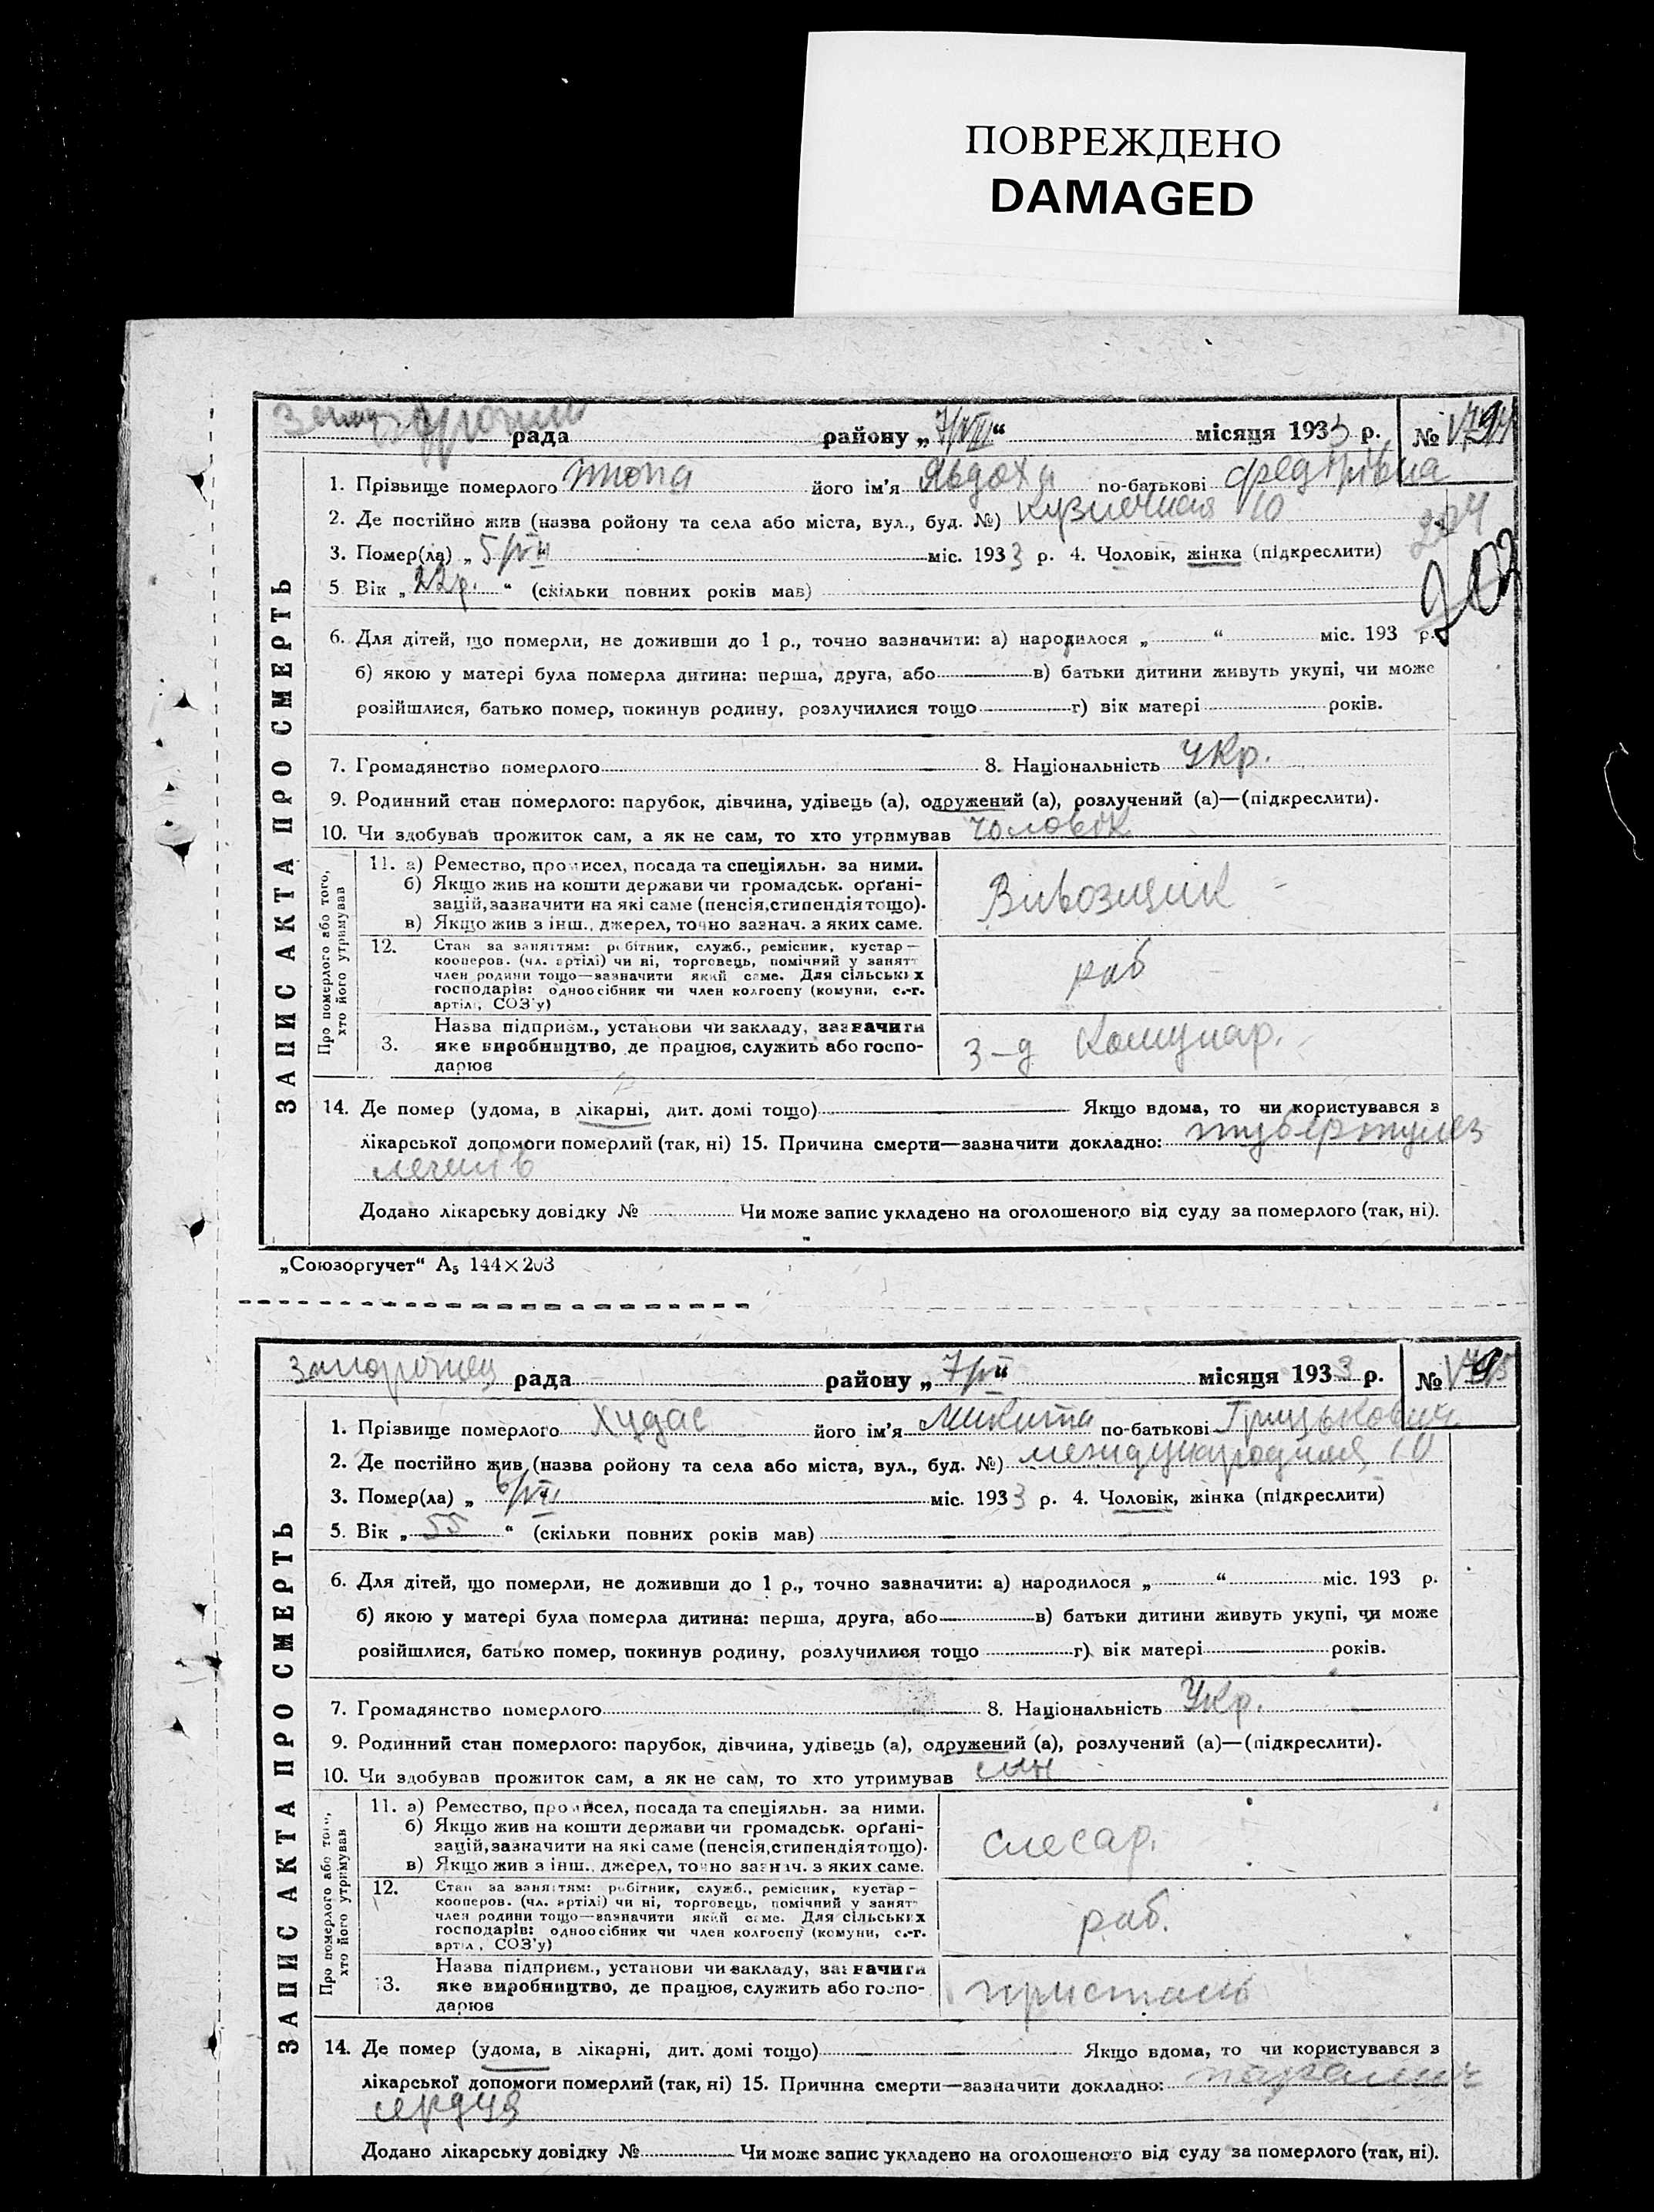 ПОВРЕЖДЕНО
DAMAGED
рада району „7/VIII“ місяця 1933 р. №
1. Прізвище померлого його ім'я Явдоха по-батькові
2. Де постійно жив (назва ройону та села або міста, вул., буд. №) Кузнечная 10
3. Помер(ла) „5/VIII міс. 1933 р. 4. Чоловік, жінка (підкреслити)
204
203
5 Вік „22р.“ (скільки повних років мав)
6. Для дітей, що померли, не доживши до 1 р., точно зазначити: а) народилося „ “ міс. 193 р.
б) якою у матері була померла дитина: перша, друга, або в) батьки дитини живуть укупі, чи може
розійшлися, батько помер, покинув родину, розлучилися тощо г) вік матері років.
7. Громадянство померлого 8. Національність Укр.
9. Родинний стан померлого: парубок, дівчина, удівець (а), одружений (а), розлучений (а)—(підкреслити).
10. Чи здобував прожиток сам, а як не сам, то хто утримував чоловік
ЗАПИС АКТА ПРО СМЕРТЬ
Про померлого або того,
хто його утримував
11. а) Ремество, промисел, посада та спеціяльн. за ними.
б) Якщо жив на кошти держави чи громадськ. орґані-
зацій, зазначити на які саме (пенсія, стипендія тощо).
в) Якщо жив з інш., джерел, точно зазнач. з яких саме.
Вивозщик
12. Стан за заняттям: робітник, служб., ремісник, кустар—
кооперов. (чл. артілі) чи ні, торговець, помічний у занятт
член родини тощо—зазначити який саме. Для сільських
господарів: одноосібник чи член колгоспу (комуни, с.-г.
артілі, СОЗ'у)
раб
3. Назва підприєм., установи чи закладу, зазначити
яке виробництво, де працює, служить або госпо-
дарює
з-д Комунар.
14. Де помер (удома, в лікарні, дит. домі тощо) Якщо вдома, то чи користувався з
лікарської допомоги померлий (так, ні) 15. Причина смерти—зазначити докладно: туберкулез
легенів
Додано лікарську довідку № Чи може запис укладено на оголошеного від суду за померлого (так, ні).
„Союзоргучет“ А5 144×203
рада району „7/VIII“ місяця 1933 р. №
1. Прізвище померлого Худас його ім'я Микита по-батькові Грицькович
2. Де постійно жив (назва ройону та села або міста, вул., буд. №) международная 10
3. Помер(ла) „6/VIII міс. 1933 р. 4. Чоловік, жінка (підкреслити)
5. Вік „55“ (скільки повних років мав)
6. Для дітей, що померли, не доживши до 1 р., точно зазначити: а) народилося „ “ міс. 193 р.
б) якою у матері була померла дитина: перша, друга, або в) батьки дитини живуть укупі, чи може
розійшлися, батько помер, покинув родину, розлучилися тощо г) вік матері років.
7. Громадянство померлого 8. Національність Укр.
9. Родинний стан померлого: парубок, дівчина, удівець (а), одружений (а), розлучений (а)—(підкреслити).
10. Чи здобував прожиток сам, а як не сам, то хто утримував син
ЗАПИС АКТА ПРО СМЕРТЬ
Про померлого або того,
хто його утримував
11. а) Ремество, промисел, посада та спеціяльн. за ними.
б) Якщо жив на кошти держави чи громадськ. орґані-
зацій, зазначити на які саме (пенсія, стипендія тощо).
в) Якщо жив з інш., джерел, точно зазнач. з яких саме.
слесар.
12. Стан за заняттям: робітник, служб., ремісник, кустар—
кооперов. (чл. артілі) чи ні, торговець, помічний у занятт
член родини тощо—зазначити який саме. Для сільських
господарів: одноосібник чи член колгоспу (комуни, с.-г.
артіл, СОЗ'у)
раб.
3. Назва підприєм., установи чи закладу, зазначити
яке виробництво, де працює, служить або госпо-
дарює
пристань
14. Де помер (удома, в лікарні, дит. домі тощо) Якщо вдома, то чи користувався з
лікарської допомоги померлий (так, ні) 15. Причина смерти—зазначити докладно: параліч
сердця
Додано лікарську довідку № Чи може запис укладено на оголошеного від суду за померлого (так, ні).